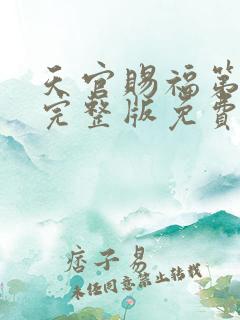 天官賜福第
完整版免費
痞子易
未经同意禁止转载